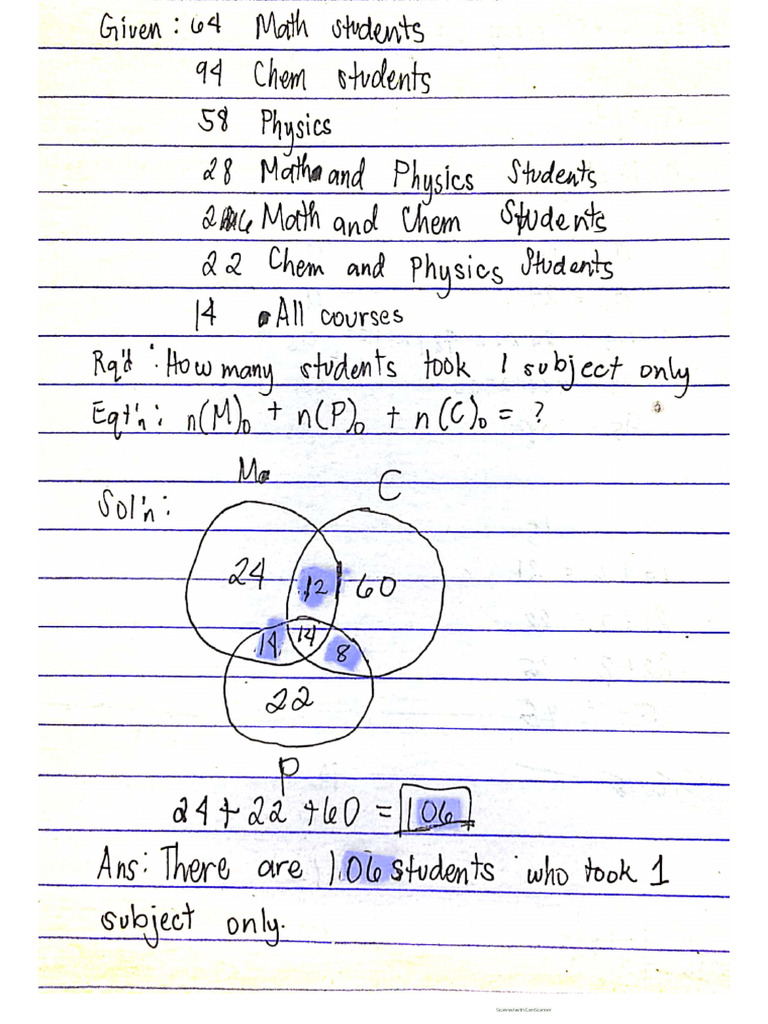 Given: 64 Math students
94 Chem students
58 Physics
28 Math and Physics Students
26 Math and Chem Students
22 Chem and Physics Students
14 All courses
Rq'd: How many students took 1 subject only
Eqt'n: n(M)₀ + n(P)₀ + n(C)₀ = ?
M
C
Sol'n:
24 12 60
14 14 8
22
P
24 + 22 + 60 = 106
Ans: There are 106 students who took 1
subject only.
Scanned with CamScanner